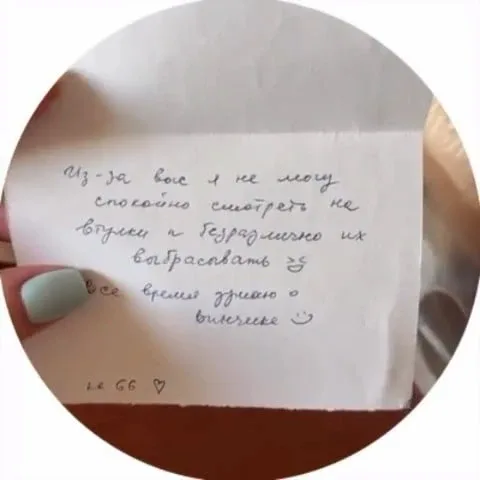 Из-за вас я не могу
спокойно смотреть на
втулки и безразлично их
выбрасывать
Все время думаю о
винчике